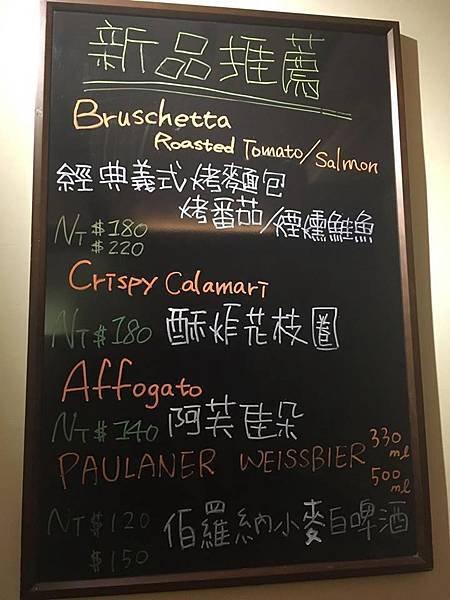 新品推薦
Bruschetta
Roasted Tomato/Salmon
經典義式烤麵包
烤番茄/煙燻鮭魚
NT$180
$220
Crispy Calamari
NT$180 酥炸花枝圈
Affogato
NT$140 阿芙佳朵
PAULANER WEISSBIER 330ml
500ml
NT$120 佰羅納小麥白啤酒
$150